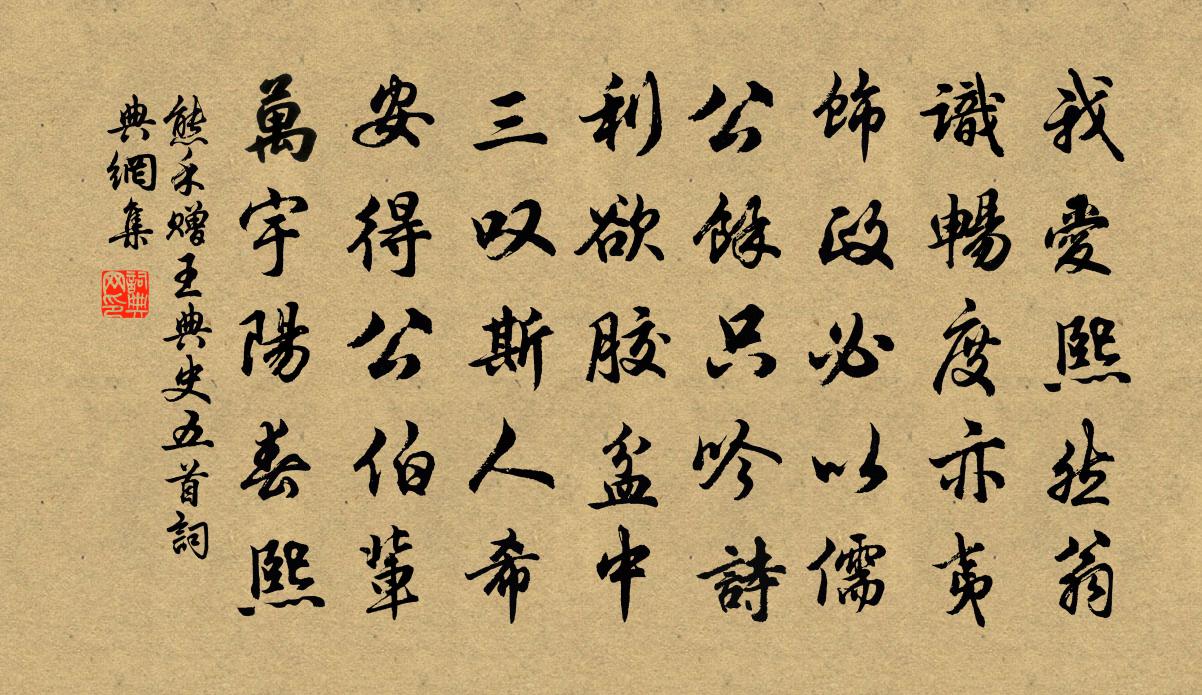 我愛熙然翁
識暢度亦夷
飾政必以儒
公餘只吟詩
利欲膠盆中
三叹斯人希
安得公伯輩
萬宇陽春熙
熊禾赠王典史五首詞
典網集
詞典网印